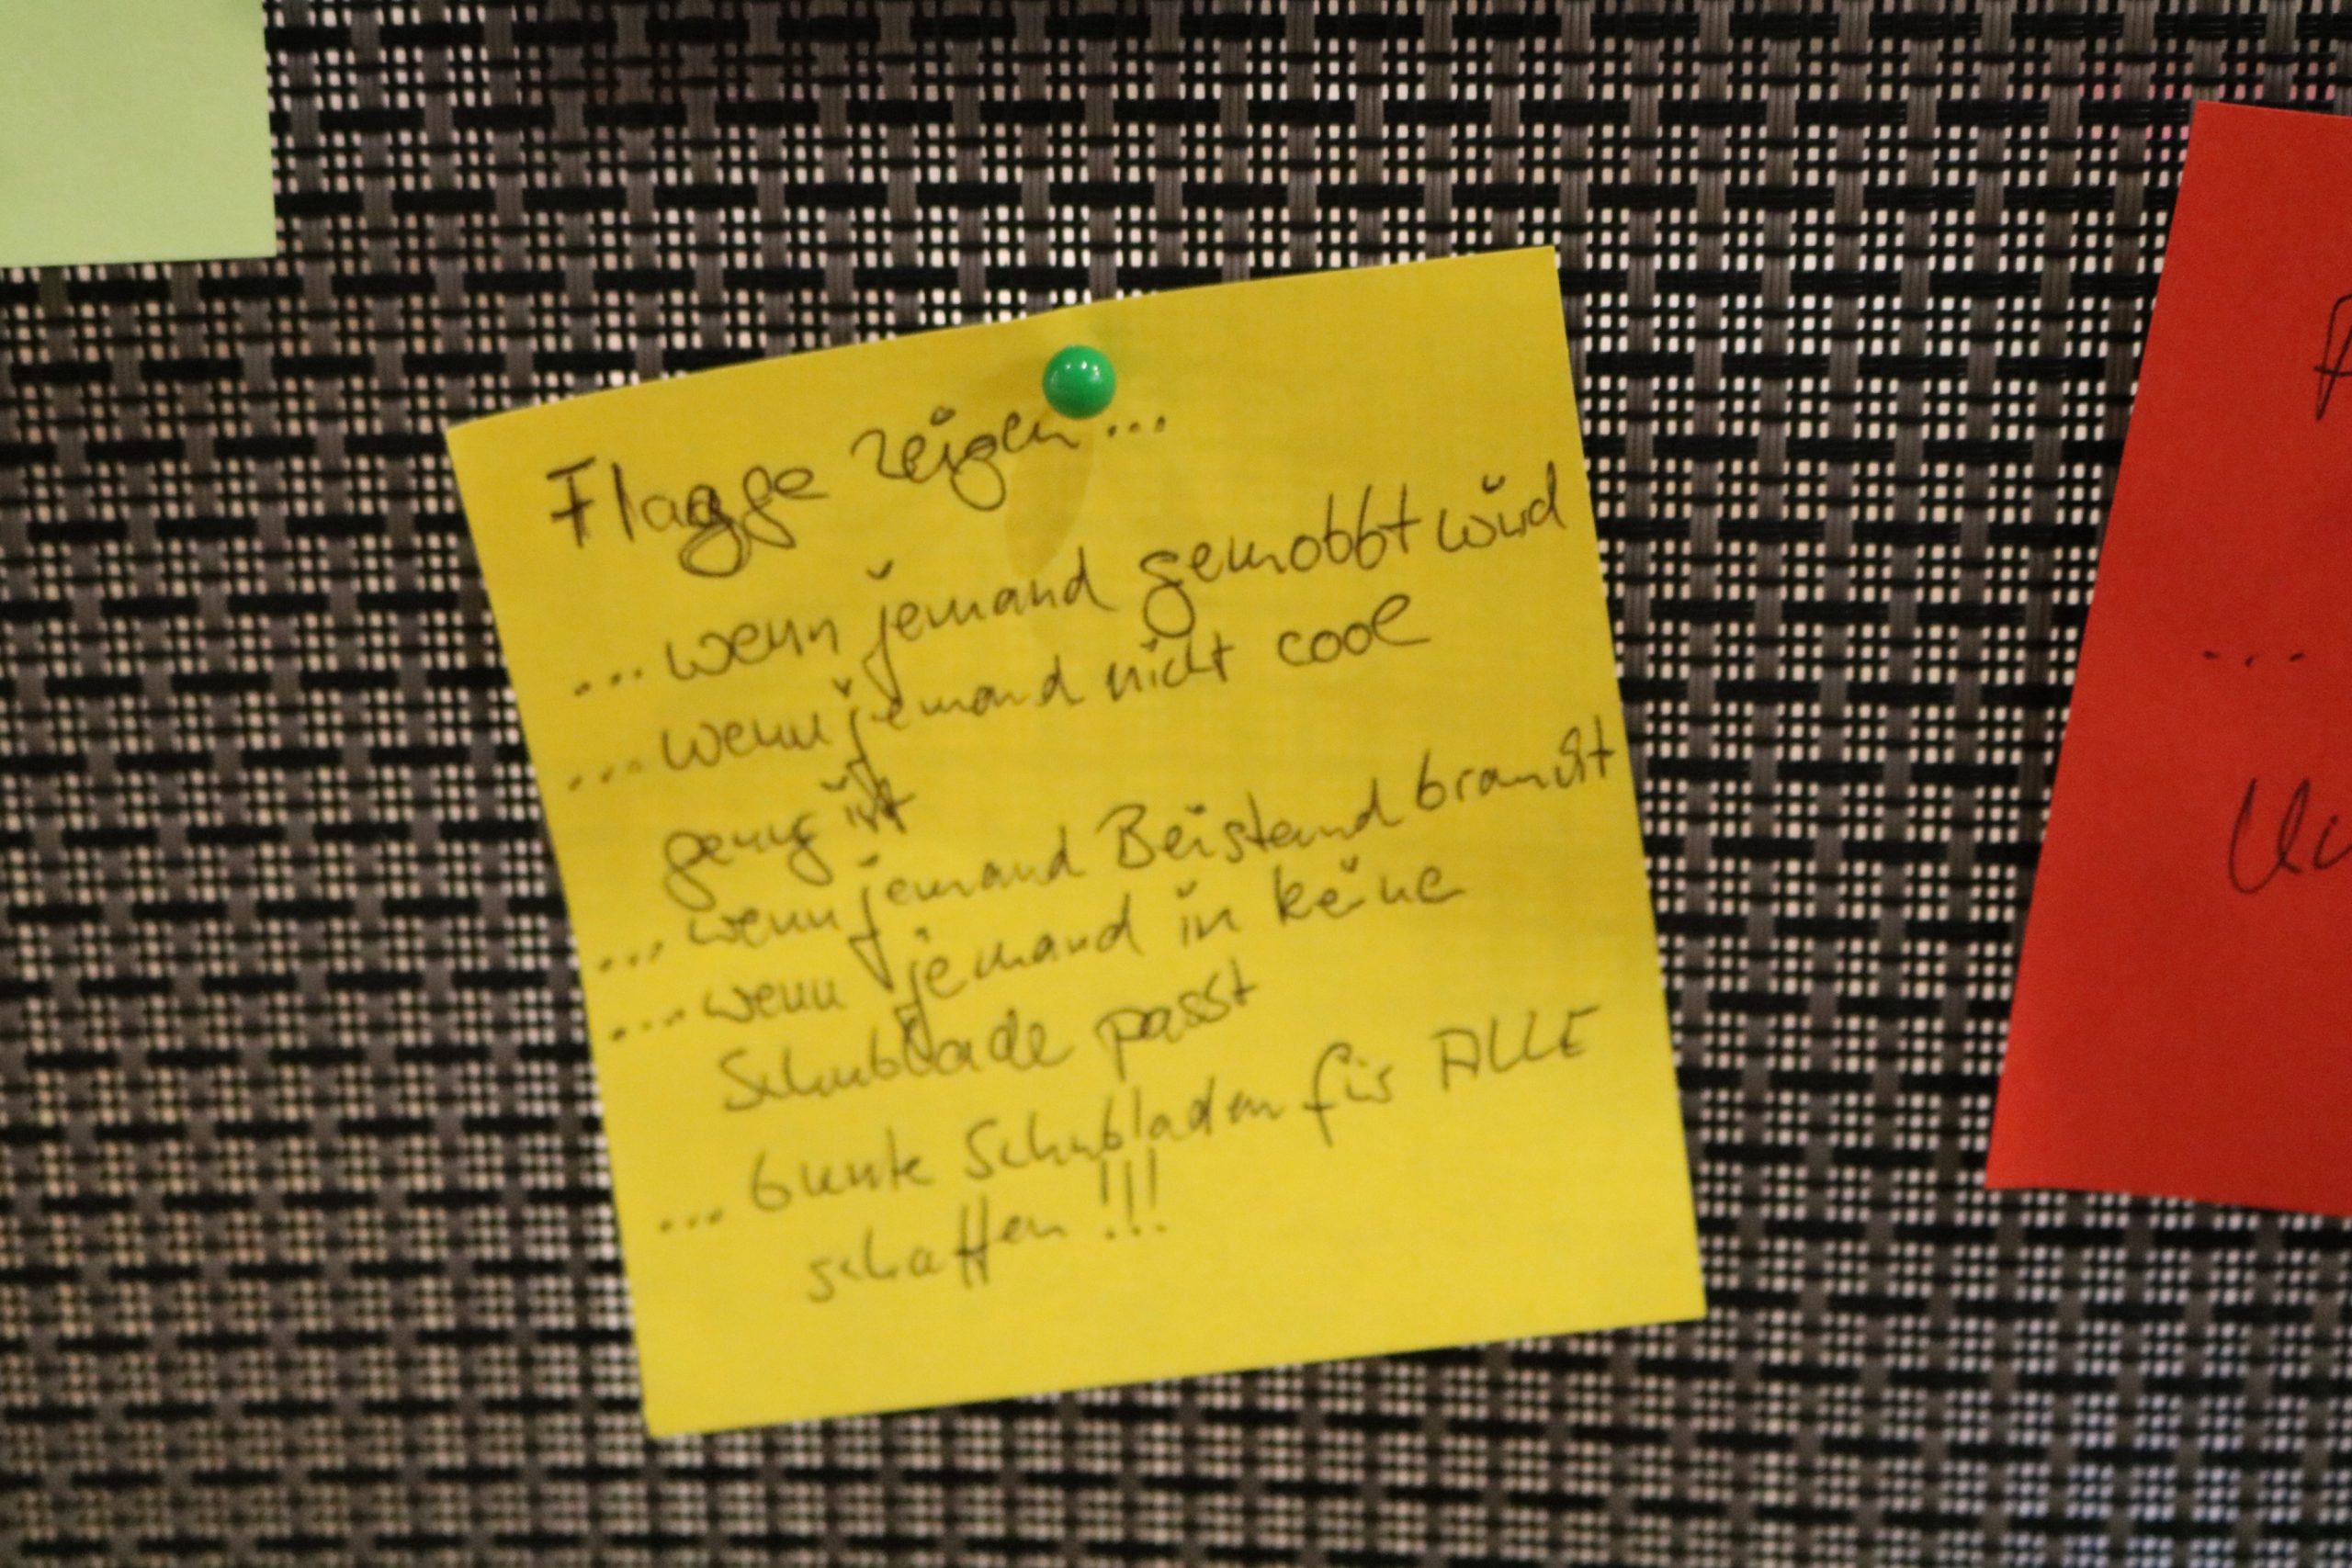 Flagge zeigen...
... wenn jemand gemobbt wird
... wenn jemand nicht cool
genug ist
... wenn jemand Beistand braucht
... wenn jemand in keine
Schublade passt
... bunte Schubladen für ALLE
schaffen !!!
...